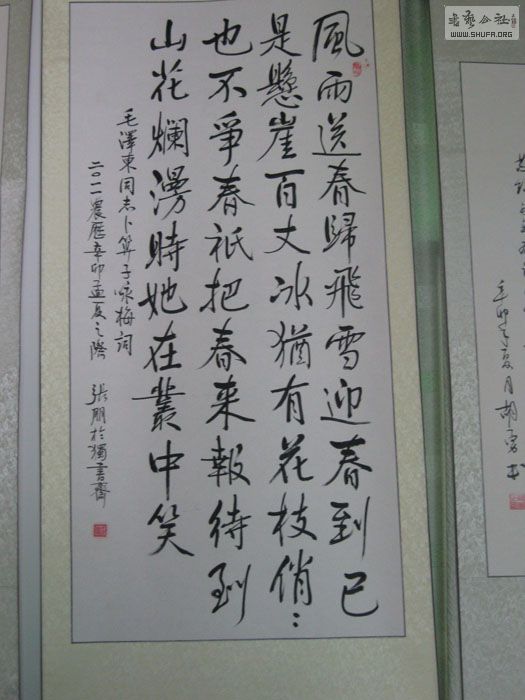 風雨送春歸飛雪迎春到已
是懸崖百丈冰猶有花枝俏：
也不爭春祇把春來報待到
山花爛漫時她在叢中笑
毛澤東同志卜算子咏梅詞
二〇一一農歷辛卯孟夏之際 張朋於獨書齋
辛卯年夏月胡勇书
WWW.SHUFA.ORG